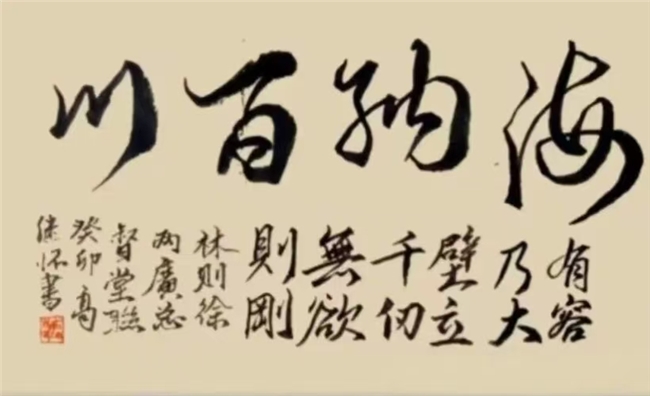 海納百川
有容
乃大
壁立
千仞
無欲
則剛
林則徐
两廣总
督堂聯
癸卯高
继怀書